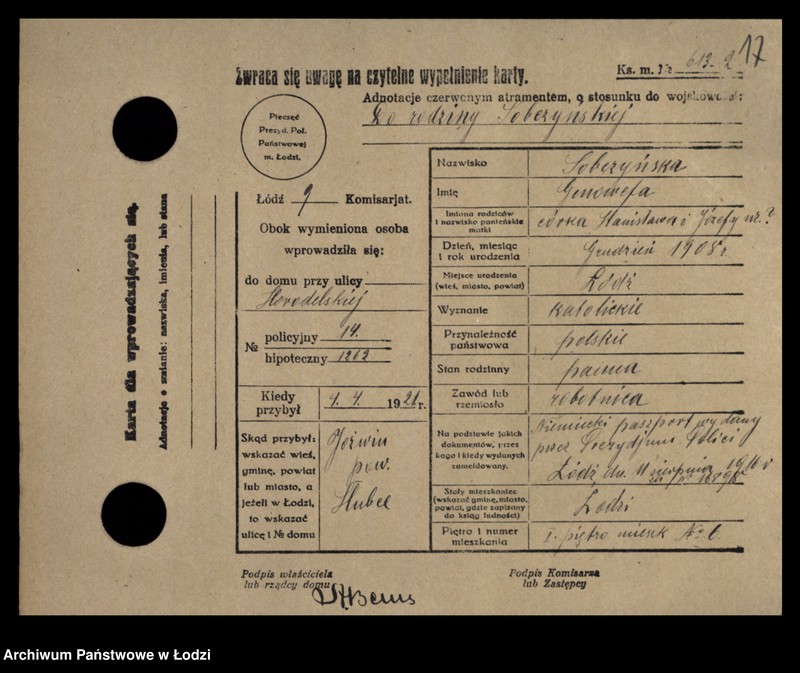 Zwraca się uwagę na czytelne wypełnienie karty.
Ks. m. № 613-2
17
Adnotacje czerwonym atramentem, o stosunku do wojskowości:
Do rodziny Soberzyńskiej
Pieczęć
Prezyd. Pol.
Państwowej
m. Łodzi.
Karta dla wprowadzających się.
Adnotacje o zmianie: nazwiska, imienia, lub stanu
Łódź 9 Komisarjat.
Obok wymieniona osoba
wprowadziła się:
do domu przy ulicy
Horodelskiej
№ policyjny 14.
hipoteczny 1262
Kiedy przybył 1. 4. 1921 r.
Skąd przybył:
wskazać wieś,
gminę, powiat
lub miasto, a
jeżeli w Łodzi,
to wskazać
ulicę i № domu
pow.
Nazwisko Soberzyńska
Imię Genowefa
Imiona rodziców
i nazwisko panieńskie
matki
córka Stanisława i Józefy nz. ?
Dzień, miesiąc
i rok urodzenia
Grudzień 1908 r.
Miejsce urodzenia
(wieś, miasto, powiat)
Łódź
Wyznanie katolickie
Przynależność
państwowa
polskie
Stan rodzinny panna
Zawód lub
rzemiosło
robotnica
Na podstawie jakich
dokumentów, przez
kogo i kiedy wydanych
zameldowany.
Niemiecki paszport wydany
przez Prezydjum Policji
Łódź dn. 11 sierpnia 1916 r
Stały mieszkaniec
(wskazać gminę, miasto,
powiat, gdzie zapisany
do ksiąg ludności)
Łodzi
Piętro i numer
mieszkania
I. piętro mieszk № 6.
Podpis właściciela
lub rządcy domu
Podpis Komisarza
lub Zastępcy
Archiwum Państwowe w Łodzi